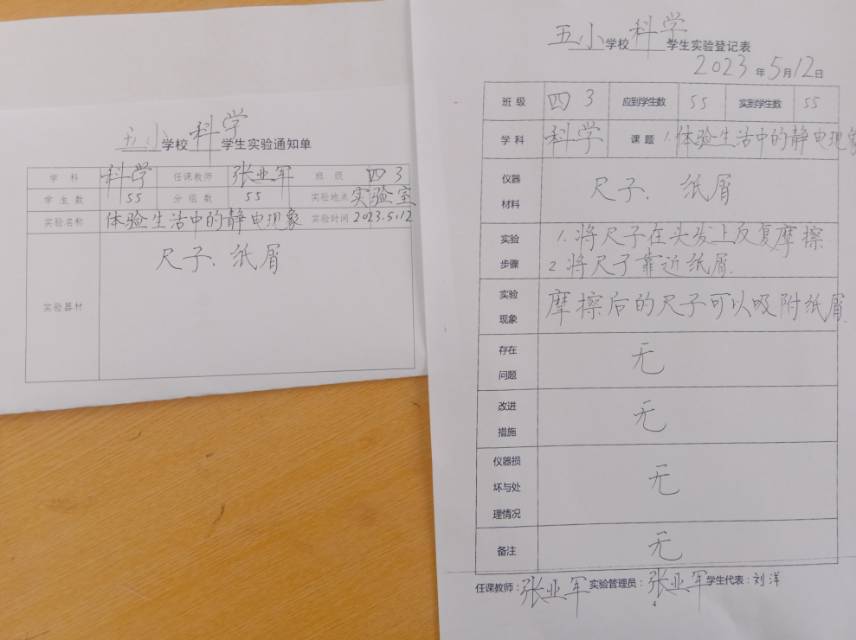 五小学校科学学生实验通知单
学科 科学 任课教师 张业军 班级 四3
学生数 55 分组数 55 实验地点 实验室
实验名称 体验生活中的静电现象 实验时间 2023.5.12
尺子、纸屑
实验器材
五小学校科学学生实验登记表
2023年5月12日
班级 四3 应到学生数 55 实到学生数 55
学科 科学 课题 1.体验生活中的静电现象
仪器
材料
尺子、纸屑
实验
步骤
1.将尺子在头发上反复摩擦
2.将尺子靠近纸屑
实验
现象
摩擦后的尺子可以吸附纸屑
存在
问题
无
改进
措施
无
仪器损
坏与处
理情况
无
备注
无
任课教师:张业军 实验管理员:张业军 学生代表:刘洋